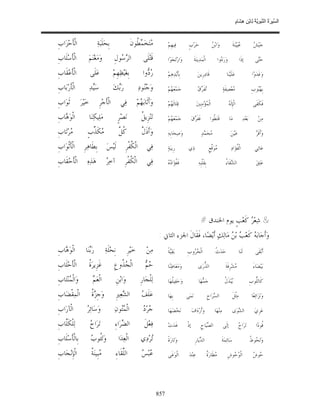 السِّيرَةُ النَّبَوِيَّةُ لِابْنِ هِشَامٍ
جَيْشُ عُيَيْنَةَ وَابْنُ حَرْبٍ فِيهِمْ مُتَخَمِّطُونَ بِحَلَبَةِ الْأَحْزَابِ
حَتَّى إِذَا وَرَدُوا الْمَدِينَةَ وَارْتَجَوْا قَتْلَى الرَّسُولِ وَمَغْنَمَ الْأَسْلَابِ
وَغَدَوْا عَلَيْنَا قَادِرِينَ بِأَيْدِهِمْ رُدُّوا بِغَيْظِهِمْ عَلَى الْأَعْقَابِ
بِهُبُوبِ مُعْصِفَةٍ تُفَرِّقُ جَمْعَهُمْ وَجُنُودِ رَبِّكَ سَيِّدِ الْأَرْبَابِ
فَكَفَى الْإِلَهُ الْمُؤْمِنِينَ قِتَالَهُمْ وَأَثَابَهُمْ فِي الْأَجْرِ خَيْرَ ثَوَابِ
مِنْ بَعْدِ مَا قَنَطُوا فَفَرَّقَ جَمْعَهُمْ تَنْزِيلُ نَصْرِ مَلِيكِنَا الْوَهَّابِ
وَأَقَرَّ عَيْنَ مُحَمَّدٍ وَصِحَابِهِ وَأَذَلَّ كُلَّ مُكَذِّبٍ مُرْتَابِ
عَاتِي الْفُؤَادِ مُوَقَّعٍ ذِي رِيبَةٍ فِي الْكُفْرِ لَيْسَ بِطَاهِرِ الْأَثْوَابِ
عَلِقَ الشَّقَاءُ بِقَلْبِهِ فَفُؤَادُهُ فِي الْكُفْرِ آخِرُ هَذِهِ الْأَحْقَابِ
* شِعْرُ كَعْبٍ يوم الخندق *
وَأَجَابَهُ كَعْبُ بْنُ مَالِكٍ أَيْضًا، فَقَالَ الجزء الثاني
أَبْقَى لَنَا حَدَثُ الْحُرُوبِ بَقِيَّةً مِنْ خَيْرِ نِحْلَةِ رَبِّنَا الْوَهَّابِ
بَيْضَاءَ مُشْرِفَةَ الذُّرَى وَمَعَاطِنًا حُمَّ الْجُذُوعِ غَزِيرَةَ الْأَحْلَابِ
كَاللُّوبِ يُبْذَلُ جَمُّهَا وَحَفِيلُهَا لِلْجَارِ وَابْنِ الْعَمِّ وَالْمُنْتَابِ
وَنَزَائِعًا مِثْلَ السِّرَاحِ نَمَى بِهَا عَلَفُ الشَّعِيرِ وَجِزَّةُ الْمِقْضَابِ
عَرِيَ الشَّوَى مِنْهَا وَأَرْدَفَ نَحْضَهَا جُرْدُ الْمُتُونِ وَسَائِرُ الْآرَابِ
قُودًا تَرَاحُ إِلَى الصِّيَاحِ إِذْ غَدَتْ فِعْلَ الضِّرَاءِ تَرَاحُ لِلْكَلَّابِ
وَتَحُوطُ سَائِمَةَ الدِّيَارِ وَتَارَةً تُرْدِي الْعِدَا وَتَئُوبُ بِالْأَسْلَابِ
حُوشُ الْوُحُوشِ مُطَارَةٌ عِنْدَ الْوَغَى عُبْسُ اللِّقَاءِ مُبِينَةُ الْإِنْجَابِ
857